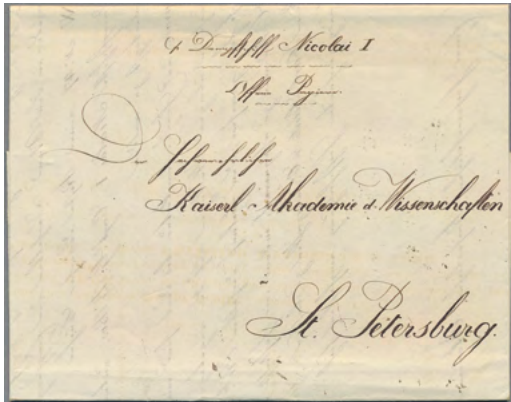 p Dampfschiff Nicolai I
Offne Papiere.
Der Hochverehrlichen
Kaiserl. Akademie d. Wissenschaften
in
St. Petersburg.